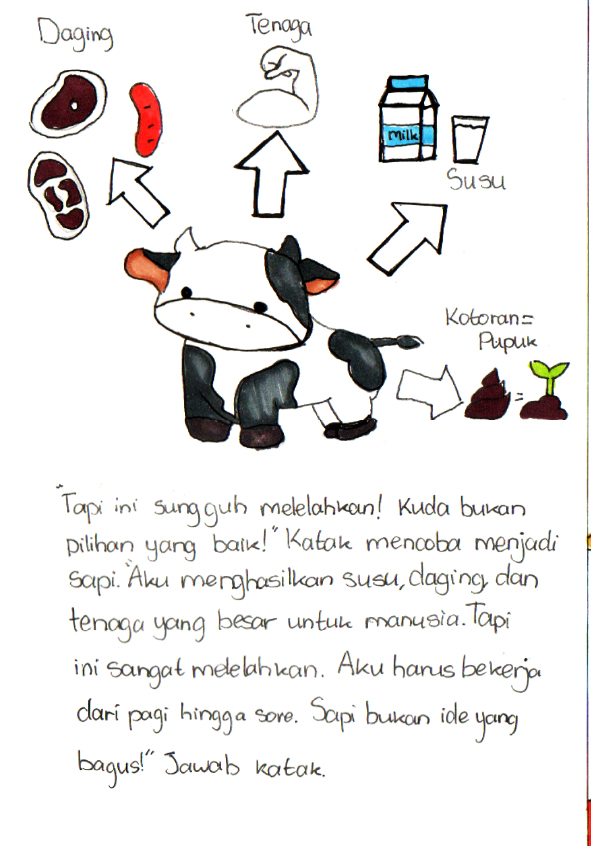 Daging
Tenaga
milk
Susu
Kotoran =
Pupuk
=
"Tapi ini sungguh melelahkan! Kuda bukan
pilihan yang baik!" Katak mencoba menjadi
sapi. "Aku menghasilkan susu, daging, dan
tenaga yang besar untuk manusia. Tapi
ini sangat melelahkan. Aku harus bekerja
dari pagi hingga sore. Sapi bukan ide yang
bagus!" Jawab katak.